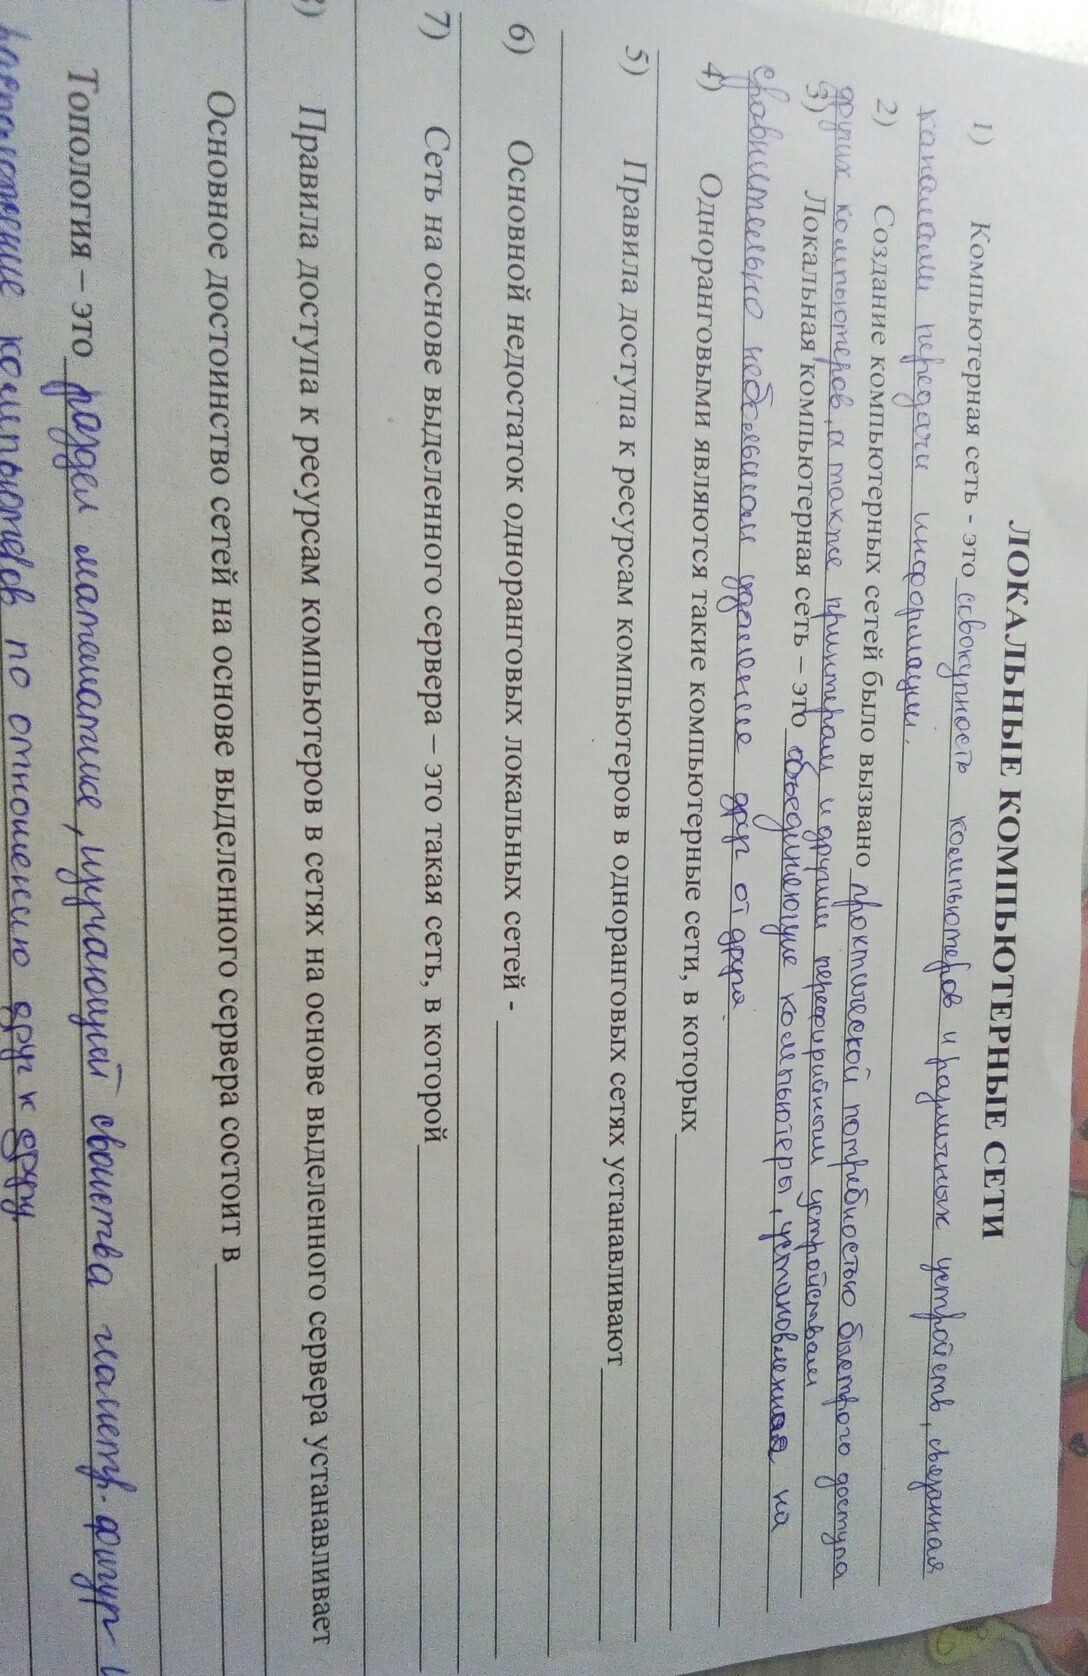 ЛОКАЛЬНЫЕ КОМПЬЮТЕРНЫЕ СЕТИ
1) Компьютерная сеть - это совокупность компьютеров и различных устройств, связанная
каналами передачи информации.
2) Создание компьютерных сетей было вызвано практической потребностью быстрого доступа
других компьютеров, а также принтерам и другим периферийным устройствам
3) Локальная компьютерная сеть – это объединяющие компьютеры, установленная на
сравнительно небольшом удаление друг от друга.
4) Одноранговыми являются такие компьютерные сети, в которых
5) Правила доступа к ресурсам компьютеров в одноранговых сетях устанавливают
6) Основной недостаток одноранговых локальных сетей -
7) Сеть на основе выделенного сервера – это такая сеть, в которой
) Правила доступа к ресурсам компьютеров в сетях на основе выделенного сервера устанавливает
) Основное достоинство сетей на основе выделенного сервера состоит в
Топология – это раздел математике, изучающей свойства геометр. фигур и
расположение компьютеров по отношению друг к другу